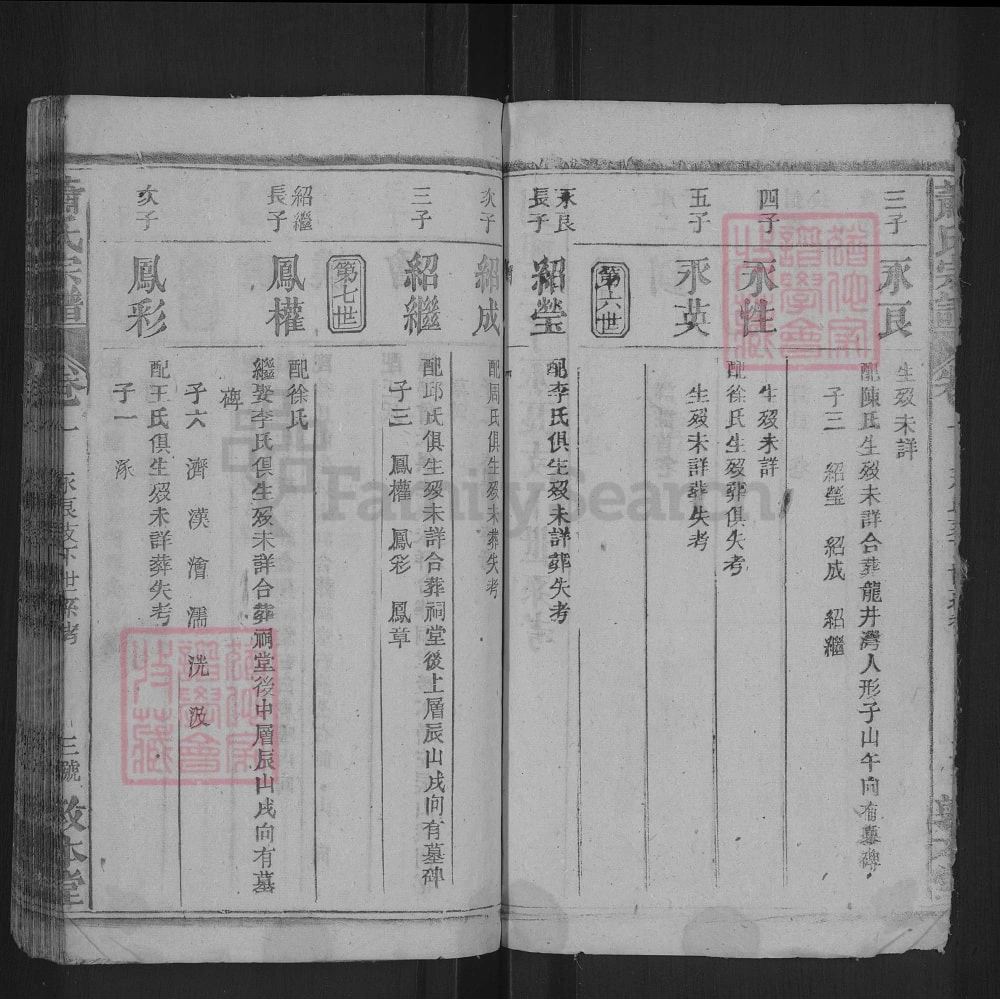 蕭氏宗譜
三子
永良
生歿未詳
配陳氏生歿未詳合葬龍井灣人形子山午向有墓碑
子三 紹瑩 紹成 紹繼
四子
永性
生歿未詳
配徐氏生歿葬俱失考
五子
永英
生歿未詳葬失考
第六世
永良長子
紹瑩
配李氏俱生歿未詳葬失考
次子
紹成
配周氏俱生歿未葬失考
三子
紹繼
配邱氏俱生歿未詳合葬祠堂後上層辰山戌向有墓碑
子三 鳳權 鳳彩 鳳章
第七世
紹繼長子
鳳權
配徐氏
繼娶李氏俱生歿未詳合葬祠堂後中層辰山戌向有墓
碑
子六 濟 漢 澮 濡 洗 汲
次子
鳳彩
配王氏俱生歿未詳葬失考
子一
蕭氏宗譜 卷一 永良支下世系考 三號 敦本堂
FamilySearch